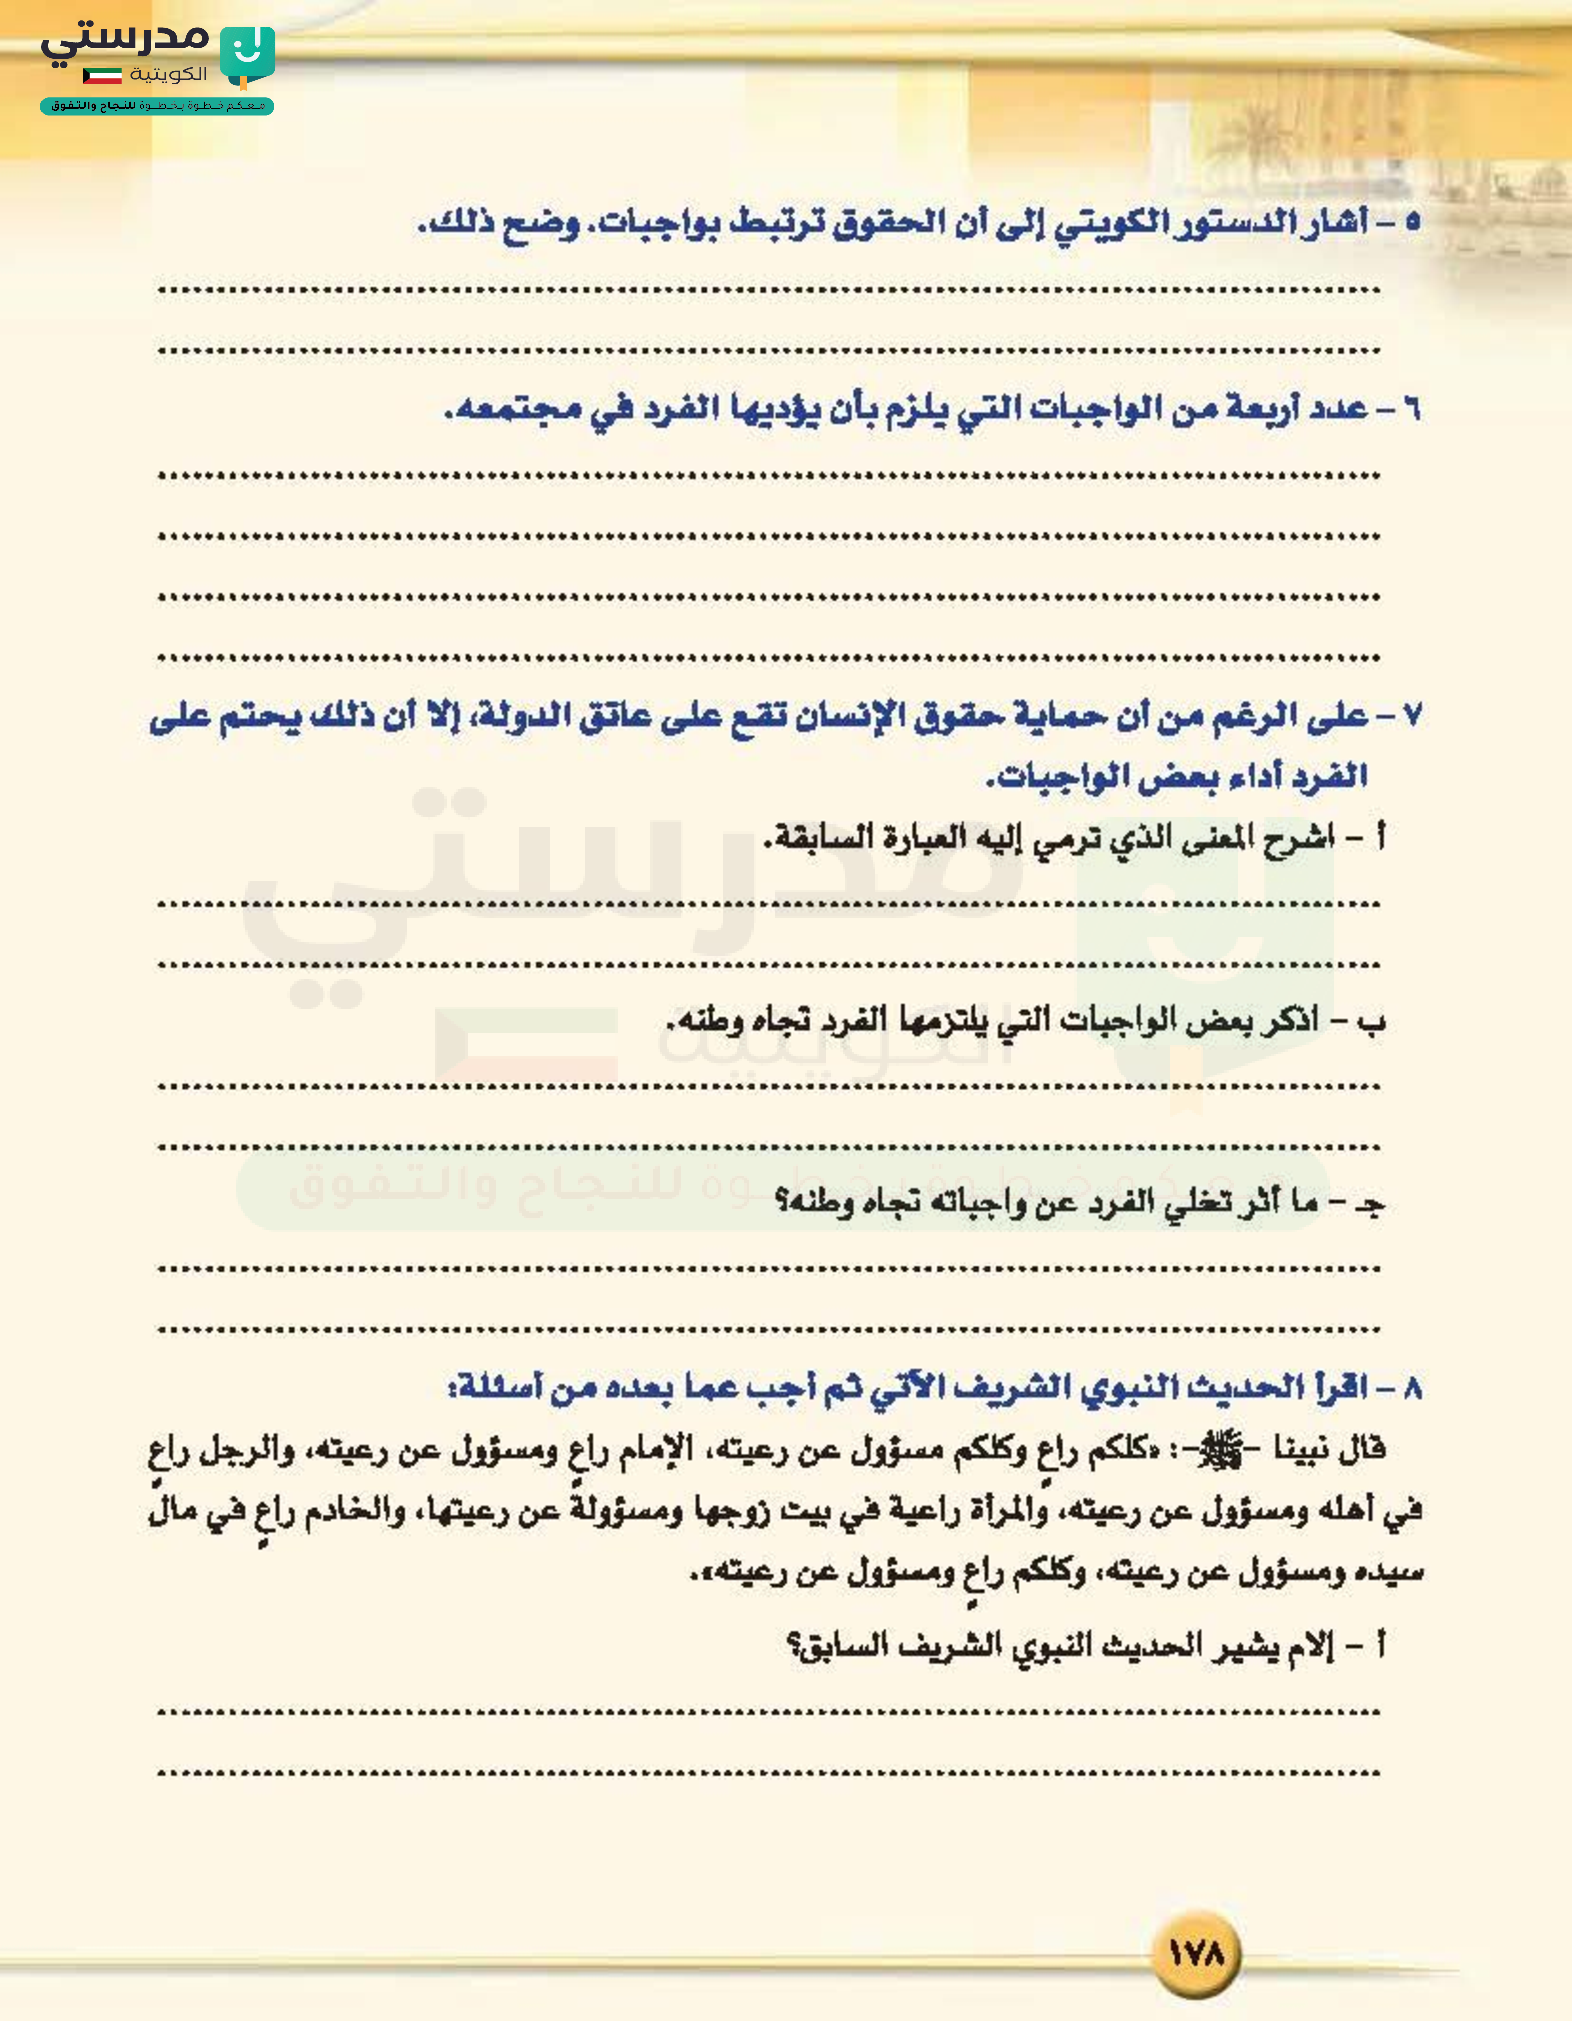 مدرستي
الكويتية
معكم خطوة بخطوة للنجاح والتفوق
٥ - أشار الدستور الكويتي إلى أن الحقوق ترتبط بواجبات. وضح ذلك.
٦ - عدد أربعة من الواجبات التي يلزم بأن يؤديها الفرد في مجتمعه.
٧ - على الرغم من أن حماية حقوق الإنسان تقع على عاتق الدولة، إلا أن ذلك يحتم على
الفرد أداء بعض الواجبات.
أ - اشرح المعنى الذي ترمي إليه العبارة السابقة.
ب - اذكر بعض الواجبات التي يلتزمها الفرد تجاه وطنه.
جـ - ما أثر تخلي الفرد عن واجباته تجاه وطنه؟
٨ - اقرأ الحديث النبوي الشريف الآتي ثم أجب عما بعده من أسئلة:
قال نبينا -ﷺ-: «كلكم راعٍ وكلكم مسؤول عن رعيته، الإمام راعٍ ومسؤول عن رعيته، والرجل راعٍ
في أهله ومسؤول عن رعيته، والمرأة راعية في بيت زوجها ومسؤولة عن رعيتها، والخادم راعٍ في مال
سيده ومسؤول عن رعيته، وكلكم راعٍ ومسؤول عن رعيته».
أ - إلام يشير الحديث النبوي الشريف السابق؟
مدرستي
الكويتية
معكم خطوة بخطوة للنجاح والتفوق
١٧٨